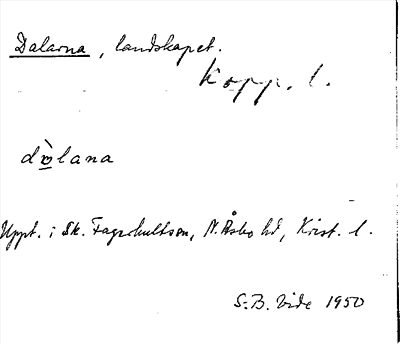 Dalarna, landskapet.
Kopp. l.
dàlana
Uppt. i Sk. Fagerhultssn, N. Åsbo hd, Krist. l.
S.-B. Vide 1950